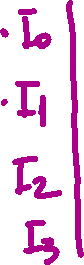 · I₀
· I₁
I₂
I₃